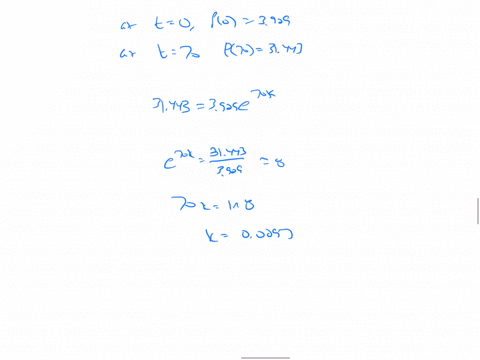 at t=0, P(0)=3.929
at t=70 P(70)=31.443
31.443=3.929e^70k
e^70k = 31.443/3.929 = 8
70k = ln 8
k = 0.0297